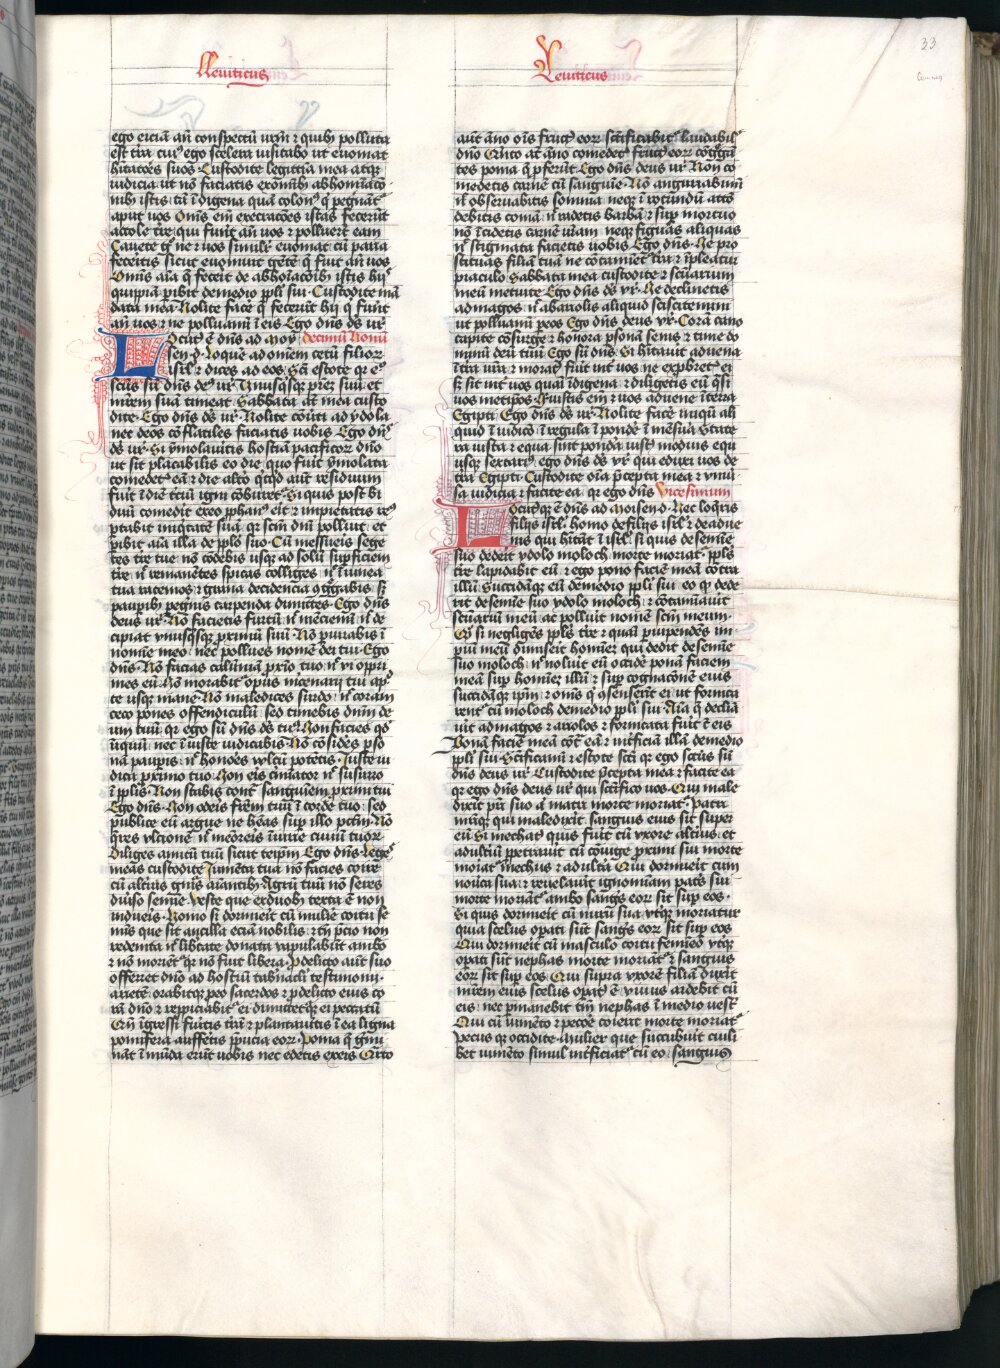 Leuiticus
Leuiticus
33
ego eiciā an̄ conspectū vr̄m ⁊ quibꝫ polluta
est tr̄a cuiꝰ ego scelera uisitabo ut euomat
hītatores suos Custodite legittīa mea atqꝫ
iudicia ut nō faciatis ex om̄ibꝫ abhomīaco
nibꝫ istis tā īdigena quā colonꝰ q̄ pegrināt
aput uos Om̄s em̄ execracōes istas fecerūt
accole tr̄e qui fuer̄t an̄ uos ⁊ polluerūt eam
Cauete gͦ ne ⁊ uos simulr̄ euomat cū paria
feceritis sicut euomuit gētē q̄ fuit an̄ uos
Om̄is aīa q̄ fecerit de abhoīacōibꝫ istis hijs
quipiā p̲ibit de medio pp̄li sui Custodite mā
data mea Nolite facē q̄ fecerūt hij q̄ fuer̄t
an̄ uos ⁊ ne polluamī ī eis Ego dn̄s ds̄ vr̄
Locutꝰ ē dn̄s ad Moy decimū Nonū
sen d̄. Loquē ad om̄em cetū filiorꝫ
isrl̄ ⁊ dices ad eos Sc̄i estote qꝛ eº
scūs sū dn̄s deꝰ vr̄ Unusqͥsqꝫ pr̄ēꝫ suū et
mr̄em suā timeat Sabbata aūt mea custo
dite Ego dn̄s ds̄ vr̄ Nolite cōuti ad ydola
nec deos cōflatiles faciatis uobis Ego dn̄s
ds̄ vr̄ Si ymolauitis hostiā pacificorꝫ dnō
ut sit placabilis eo die quo fuit ymolata
comedetꝭ eā ⁊ die altº qͥcqͥd aūt residuum
fuit ī diē t̄ciū igni cōburetꝭ Siquis post bi
duū comedit ex eo p̲phanꝰ eit ⁊ impietatis reꝰ
portabit iniqͥtatē suā qꝛ scm̄ dnī polluit et
p̲ibit aīa illa de pplo suo Cū messueis sege
tes tr̄e tue nō tōdebis usqꝫ ad solū sup̲ficiem
tr̄e n̄ remanētes spicas colliges n̄ ī uinea
tua racemos ⁊ grana decidencia cōgregabis sꝫ
paup̲ibꝫ ⁊ pegrīnis carpenda dimittes Ego dn̄s
deus vr̄ Nō facietis furtū n̄ mēciemī n̄ de
cipiat vnusqͥsqꝫ p̄ximū suū Nō p̲iurabis ī
noīe meo nec pollues nomē dei tui Ego
dn̄s Nō facias calūniā p̄xīo tuo n̄ vi opp̄i
mes eū Nō morabitꝰ opus m̄cenarij tui ap̲
te usqꝫ mane Nō maledices surdo n̄ coram
ceco pones offendiculū sed timebis dn̄m de
um tuū qꝛ ego sū dn̄s ds̄ tuꝰ Non facies qd̄
iniquū nec īiuste iudicabis Nō cōsideēs p̲so
nā paup̲is n̄ honōes vultū potētis Iuste iu
dica p̄ximo tuo Non eis crimīator n̄ susurro
ī p̲plis Non stabis contͣ sanguinem p̄ximi tui
Ego dn̄s Non oderis fr̄em tuū ī corde tuo sed
publice eū argue ne hēas sup̲ illo pctm̄ Nō
qͣeres vlcionē n̄ memoreis iniurie ciuiū tuorꝫ
Diliges amicū tuū sicut teip̄m Ego dn̄s Leges
meas custodite Iumēta tua nō facies coire
cū altius gn̄is aīantibꝫ Agrū tuū nō seres
diuiso semīe Veste que ex duobꝫ texta ē non
indueris Homo si dormieit cū muliē coitu se
mīs que sit ancilla eciā nobilis ⁊ tn̄ p̄cio non
redempta n̄ libtate donata vapulabūt ambo
⁊ nō morient̄ qꝛ nō fuit libera p̱ delicto aūt suo
offerret dn̄o ad hostiū tabn̄acli testimonij
arietē orabitqꝫ p̱ eo sacerdos ⁊ p̱ delicto eius co
rā dn̄o ⁊ rep̱piciabitꝰ ei dimittetqꝫ ei peccatū
Qn̄ īgressi fueitis tr̄ā ⁊ plantaueitis ī ea ligna
pomifera auffetis p̱pucia eorꝫ Poma q̄ gmī
nāt īmūda erūt uobis nec edetis ex eis Qͣrto
aūt āno oīs fructꝰ eorꝫ sc̄ificabit̄ laudabilꝭ
dn̄o Qͥnto aūt āno comedetꝭ fructꝰ eorꝫ cōgrega
tes poma q̄ p̲ferūt Ego dn̄s deus vr̄ Non co
medetis carnē cū sanguīe Nō auguriabimī
n̄ obseruabitis somnia neqꝫ ī rotūndū attō
debitis comā n̄ radetis barbā ⁊ sup̲ mortuo
nō īcidetis carnē vr̄am neqꝫ figuras aliquas
n̄ stigmata facietis uobis Ego dn̄s Ne pro
stituas filiā tuā ne cōtamīet̄ tr̄a ⁊ īpleatur
piaculo Sabbata mea custodite ⁊ sc̄uarium
meū metuite Ego dn̄s ds̄ vr̄ Ne declinetis
ad magos n̄ ab ariolis aliquid sciscitemini
ut polluamī p̲ eos Ego dn̄s deus vr̄ Corā cano
capite cōsurge ⁊ honora p̲sonā senis ⁊ time do
minū deū tuū Ego sū dn̄s Si hītauit aduena
ī tr̄a vr̄a ⁊ moratꝰ fuit int̄ uos ne exp̲bret̄ ei
sꝫ sit int̄ uos quasi īdigena ⁊ diligetis eū qͣsi
uos metip̄os Fuistis em̄ ⁊ uos aduene ī terra
Egipti Ego dn̄s ds̄ vr̄ Nolite facē iniqū ali
quid ī iudicº ī regula ī pondē ī mēsura State
ra iusta ⁊ equa sint pondā iustꝰ modius equ
usqꝫ sextariꝰ ego dn̄s ds̄ vr̄ qui eduxi uos de
tr̄a Egipti Custodite oīa p̄cepta mea ⁊ vniū
sa iudicia ⁊ facite ea qꝛ ego dn̄s Vicesimum
Locutꝰqꝫ ē dn̄s ad Moisen d̄. Hec loqͥris
filijs isrl̄ homo de filijs isrl̄ ⁊ de adue
nis qui hītāt ī isrl̄ si quis de semīe
suo dedeit ydolo moloch morte moriat̄ ppl̄s
tr̄e lapidabit eū ⁊ ego ponā faciē meā cōtra
illū Succidāqꝫ eū de medio ppl̄i sui eo q̄ dede
rit de semīe suo ydolo moloch ⁊ cōtamīauit
sc̄uariū meū ac polluit nomē scm̄ meum
Qͦd si negligēs ppl̄s tr̄e ⁊ quasi p̲uipendēs im
piū meū dimiseit hoīem qui dedit de semīe
suo moloch n̄ uoluit eū occidē ponā faciem
meā sup̲ hoīem illū ⁊ sup̲ cognacōnē eius
succidāqꝫ ip̄m ⁊ om̄is q̄ cōsenserūt ei ut fornica
rent̄ cū moloch de medio ppl̄i sui Aīa q̄ declia
uit ad magos ⁊ ariolos ⁊ fornicata fuit cū eis
Ponā faciē meā contͣ eā ⁊ int̄ficiā illā de medio
ppl̄i sui Sc̄ificamī ⁊ estote sc̄i qꝛ ego sc̄us sū
dn̄s deus vr̄ Custodite p̄cepta mea ⁊ facite ea
qꝛ ego dn̄s deus vr̄ qui sc̄ifico uos Qui male
dixit pr̄i suo aut mat̄i morte moriat̄ Patri
mr̄iqꝫ qui maledixit sanguis eius sit super
eū Si mechatꝰ quis fuit cū vxore alterius et
adultiū p̲petrauit cū cōiuge p̄ximi sui morte
moriāt̄ mechus ⁊ adultera Qui dormieit cum
nouca sua ⁊ reuelauit ignomīam patͥs sui
morte moriāt̄ ambo sangͥs eorꝫ sit sup̲ eos
Si quis dormieit cū nuru sua vtqꝫ moriatur
quia scelus opati sūt sangͥs eorꝫ sit sup̲ eos
Qui dormieit cū masculo coitu femīeo vtqꝫ
opati sūt nephas morte moriāt̄ ⁊ sanguis
eorꝫ sit sup̲ eos Qui supra vxorē filiā duxit
mr̄em eius scelus opatꝰ ē viuus ardebit cū
eis nec p̲manebit tm̄ nephas ī medio uestꝰ
Qui cū iumēto ⁊ pecoē coierit morte moriat̄
Pecus qͦꝫ occidite Mulier que succubuit cuili
bet iumēto simul int̄ficiat̄ cū eo sanguis